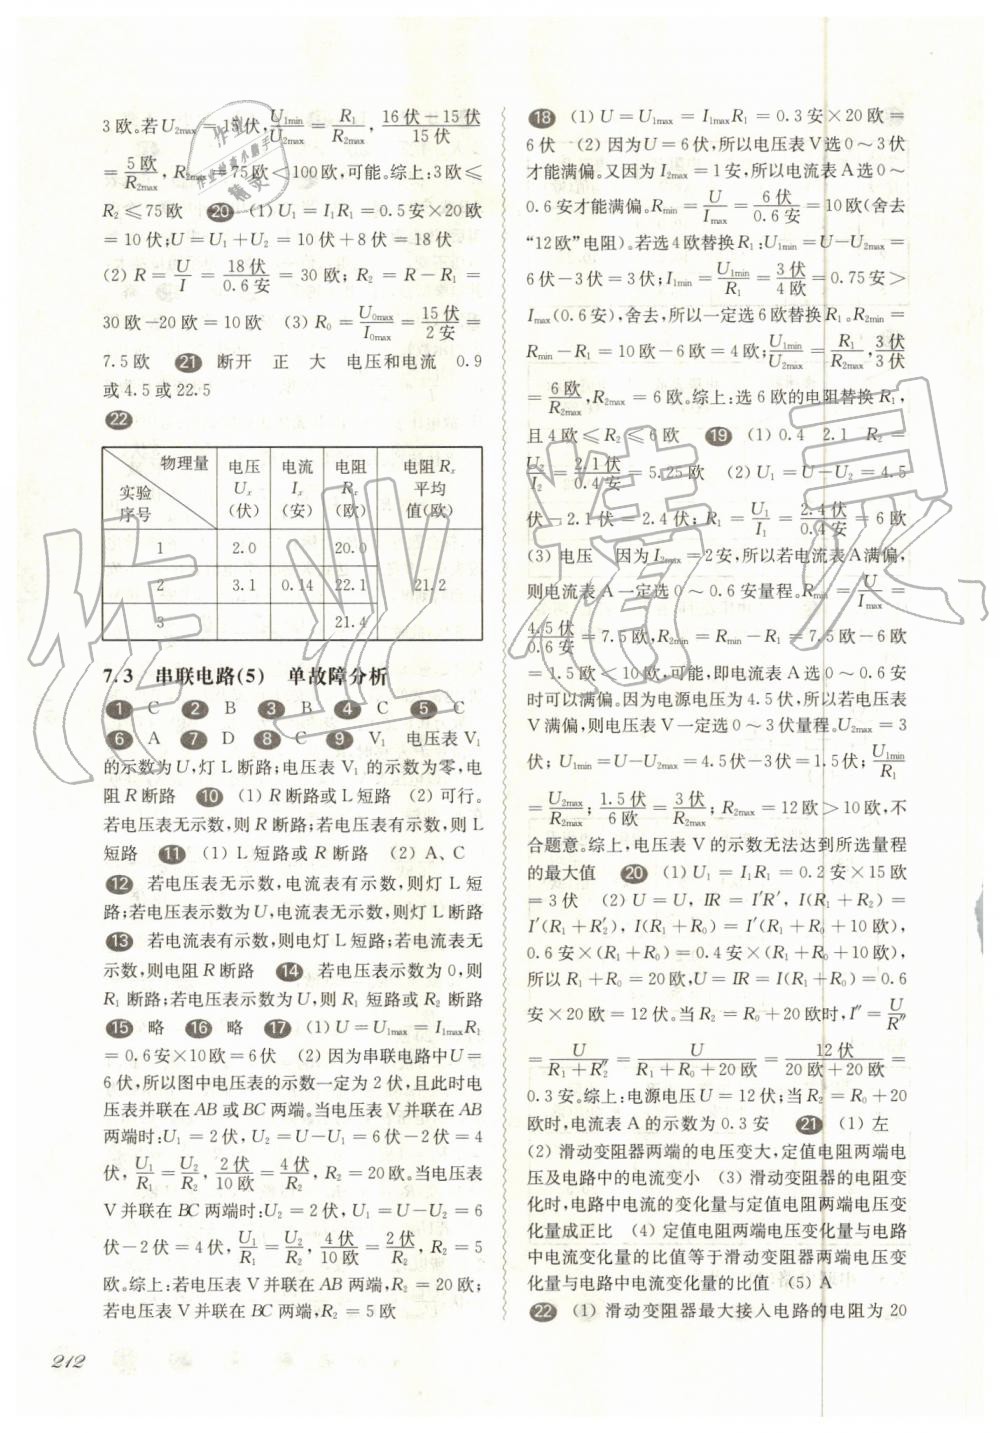 3欧。若U₂max=15伏,U₁min/U₂max=R₁/R₂max,(16伏-15伏)/15伏
=5欧/R₂max,R₂max=75欧<100欧,可能。综上:3欧≤
R₂≤75欧 20 (1) U₁=I₁R₁=0.5安×20欧
=10伏;U=U₁+U₂=10伏+8伏=18伏
(2) R=U/I=18伏/0.6安=30欧; R₂=R-R₁=
30欧-20欧=10欧 (3) R₀=U₀max/I₀max=15伏/2安=
7.5欧 21 断开 正 大 电压和电流 0.9
或4.5或22.5
22
物理量 实验序号 电压Uₓ(伏) 电流Iₓ(安) 电阻Rₓ(欧) 电阻Rₓ平均值(欧)
1 2.0 20.0
2 3.1 0.14 22.1 21.2
3 21.4
7.3 串联电路(5) 单故障分析
1 C 2 B 3 B 4 C 5 C
6 A 7 D 8 C 9 V₁ 电压表V₁
的示数为U,灯L断路;电压表V₁的示数为零,电
阻R断路 10 (1) R断路或L短路 (2) 可行。
若电压表无示数,则R断路;若电压表有示数,则L
短路 11 (1) L短路或R断路 (2) A、C
12 若电压表无示数,电流表有示数,则灯L短
路;若电压表示数为U,电流表无示数,则灯L断路
13 若电流表有示数,则电灯L短路;若电流表无
示数,则电阻R断路 14 若电压表示数为0,则
R₁断路;若电压表示数为U,则R₁短路或R₂断路
15 略 16 略 17 (1) U=U₁max=I₁maxR₁
=0.6安×10欧=6伏 (2) 因为串联电路中U=
6伏,所以图中电压表的示数一定为2伏,且此时电
压表并联在AB或BC两端。当电压表V并联在AB
两端时:U₁=2伏,U₂=U-U₁=6伏-2伏=4
伏,U₁/R₁=U₂/R₂,2伏/10欧=4伏/R₂,R₂=20欧。当电压表
V并联在BC两端时:U₂=2伏,U₁=U-U₂=6
伏-2伏=4伏,U₁/R₁=U₂/R₂,4伏/10欧=2伏/R₂,R₂=5
欧。综上:若电压表V并联在AB两端,R₂=20欧;
若电压表V并联在BC两端,R₂=5欧
212
18 (1) U=U₁max=I₁maxR₁=0.3安×20欧=
6伏 (2) 因为U=6伏,所以电压表V选0~3伏
才能满偏。又因为I₂max=1安,所以电流表A选0~
0.6安才能满偏。Rmin=U/Imax=6伏/0.6安=10欧(舍去
“12欧”电阻)。若选4欧替换R₁:U₁min=U-U₂max=
6伏-3伏=3伏;I₁min=U₁min/R₁=3伏/4欧=0.75安>
Imax(0.6安),舍去,所以一定选6欧替换R₁。R₂min=
Rmin-R₁=10欧-6欧=4欧;U₁min/U₂max=R₁/R₂max,3伏/3伏
=6欧/R₂max,R₂max=6欧。综上:选6欧的电阻替换R₁,
且4欧≤R₂≤6欧 19 (1) 0.4 2.1 R₂=
U₂/I₂=2.1伏/0.4安=5.25欧 (2) U₁=U-U₂=4.5
伏-2.1伏=2.4伏;R₁=U₁/I₁=2.4伏/0.4安=6欧
(3) 电压 因为I₂max=2安,所以若电流表A满偏,
则电流表A一定选0~0.6安量程。Rmin=U/Imax=
4.5伏/0.6安=7.5欧,R₂min=Rmin-R₁=7.5欧-6欧
=1.5欧<10欧,可能,即电流表A选0~0.6安
时可以满偏。因为电源电压为4.5伏,所以若电压表
V满偏,则电压表V一定选0~3伏量程。U₂max=3
伏;U₁min=U-U₂max=4.5伏-3伏=1.5伏;U₁min/R₁
=U₂max/R₂max;1.5伏/6欧=3伏/R₂max;R₂max=12欧>10欧,不
合题意。综上,电压表V的示数无法达到所选量程
的最大值 20 (1) U₁=I₁R₁=0.2安×15欧
=3伏 (2) U=U, IR=I′R′, I(R₁+R₂)=
I′(R₁+R₂′), I(R₁+R₀)=I′(R₁+R₀+10欧),
0.6安×(R₁+R₀)=0.4安×(R₁+R₀+10欧),
所以R₁+R₀=20欧,U=IR=I(R₁+R₀)=0.6
安×20欧=12伏。当R₂=R₀+20欧时,I″=U/R″
=U/(R₁+R₂″)=U/(R₁+R₀+20欧)=12伏/(20欧+20欧)=
0.3安。综上:电源电压U=12伏;当R₂=R₀+20
欧时,电流表A的示数为0.3安 21 (1) 左
(2) 滑动变阻器两端的电压变大,定值电阻两端电
压及电路中的电流变小 (3) 滑动变阻器的电阻变
化时,电路中电流的变化量与定值电阻两端电压变
化量成正比 (4) 定值电阻两端电压变化量与电路
中电流变化量的比值等于滑动变阻器两端电压变
化量与电路中电流变化量的比值 (5) A
22 (1) 滑动变阻器最大接入电路的电阻为20
作业精灵